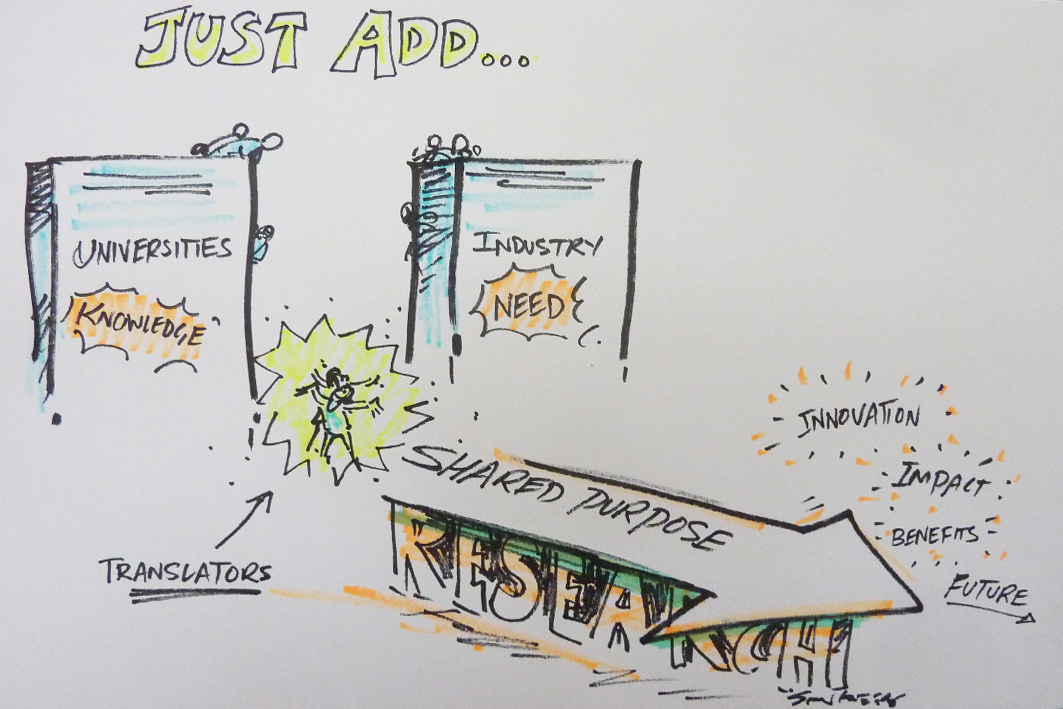 JUST ADD...
UNIVERSITIES
KNOWLEDGE
INDUSTRY
NEED
TRANSLATORS
SHARED PURPOSE
RESEARCH
INNOVATION
IMPACT
BENEFITS
FUTURE